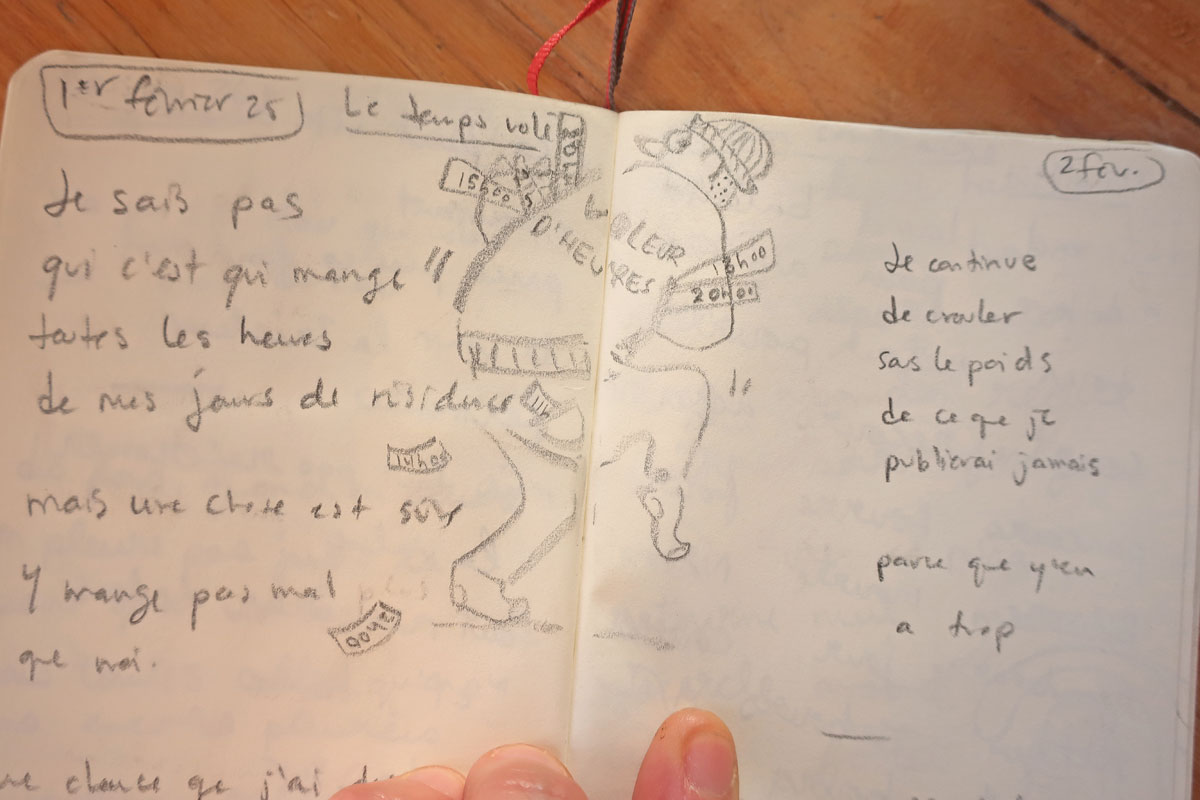 1er février 25
Le temps volé
Je sais pas
qui c'est qui mange
toutes les heures
de mes jours de résidence
mais une chose est sûr
Y mange pas mal plus
que moi.
chance que j'ai
15h00
VOLEUR
D'HEURES
20h00
11h
14h00
2 fév.
Je continue
de crouler
sous le poids
de ce que je
publierai jamais
parce que y'en
a trop